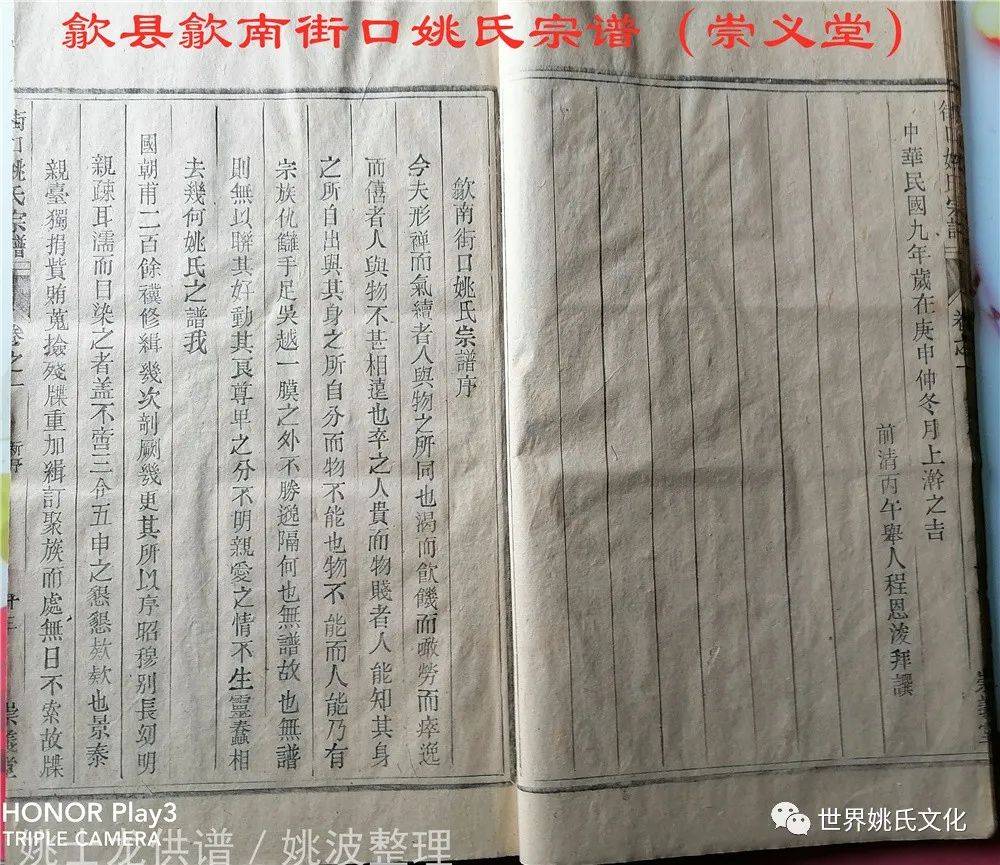 歙县歙南街口姚氏宗谱（崇义堂）
中華民國九年歲在庚申仲冬月上澣之吉
前清丙午舉人程恩浚拜譔
崇義堂
歙南街口姚氏宗譜序
今夫形禪而氣續者人與物之所同也渴而飲饑而噉勞而瘁逸
而僖者人與物不甚相遠也卒之人貴而物賤者人能知其身
之所自出與其身之所自分而物不能也物不能而人能乃有
宗族仇讎手足吳越一膜之外不勝邈隔何也無譜故也無譜
則無以聯其好動其良尊卑之分不明親愛之情不生靈蠢相
去幾何姚氏之譜我
國朝甫二百餘禩修緝幾次剞劂幾更其所以序昭穆別長幼明
親疎耳濡而目染之者盖不啻三令五申之懇懇欵欵也景泰
親臺獨捐貲賄蒐撿殘牒重加緝訂聚族而處無日不索故牒
街口姚氏宗譜
卷之一
新序
廿三
崇義堂
HONOR Play3
TRIPLE CAMERA
姚土龙供谱 / 姚波整理
世界姚氏文化